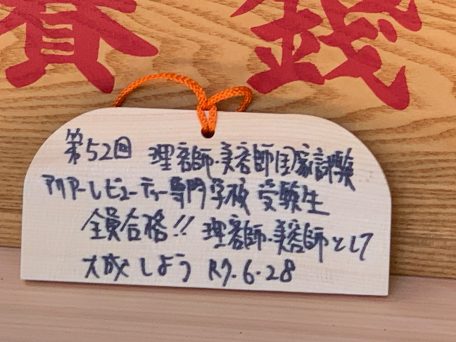 賽銭
第52回 理容師・美容師国家試験
アリアーレビューティー専門学校 受験生
全員合格!! 理容師・美容師として
大成しよう R7・6・28